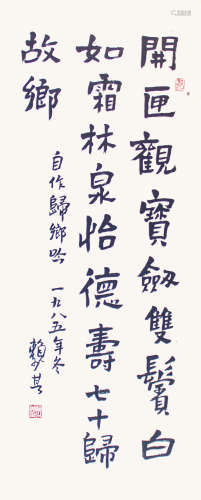 開匣觀寶劔雙鬢白
如霜林泉怡德壽七十歸
故鄉
自作歸鄉吟 一九八五年冬
賴少其